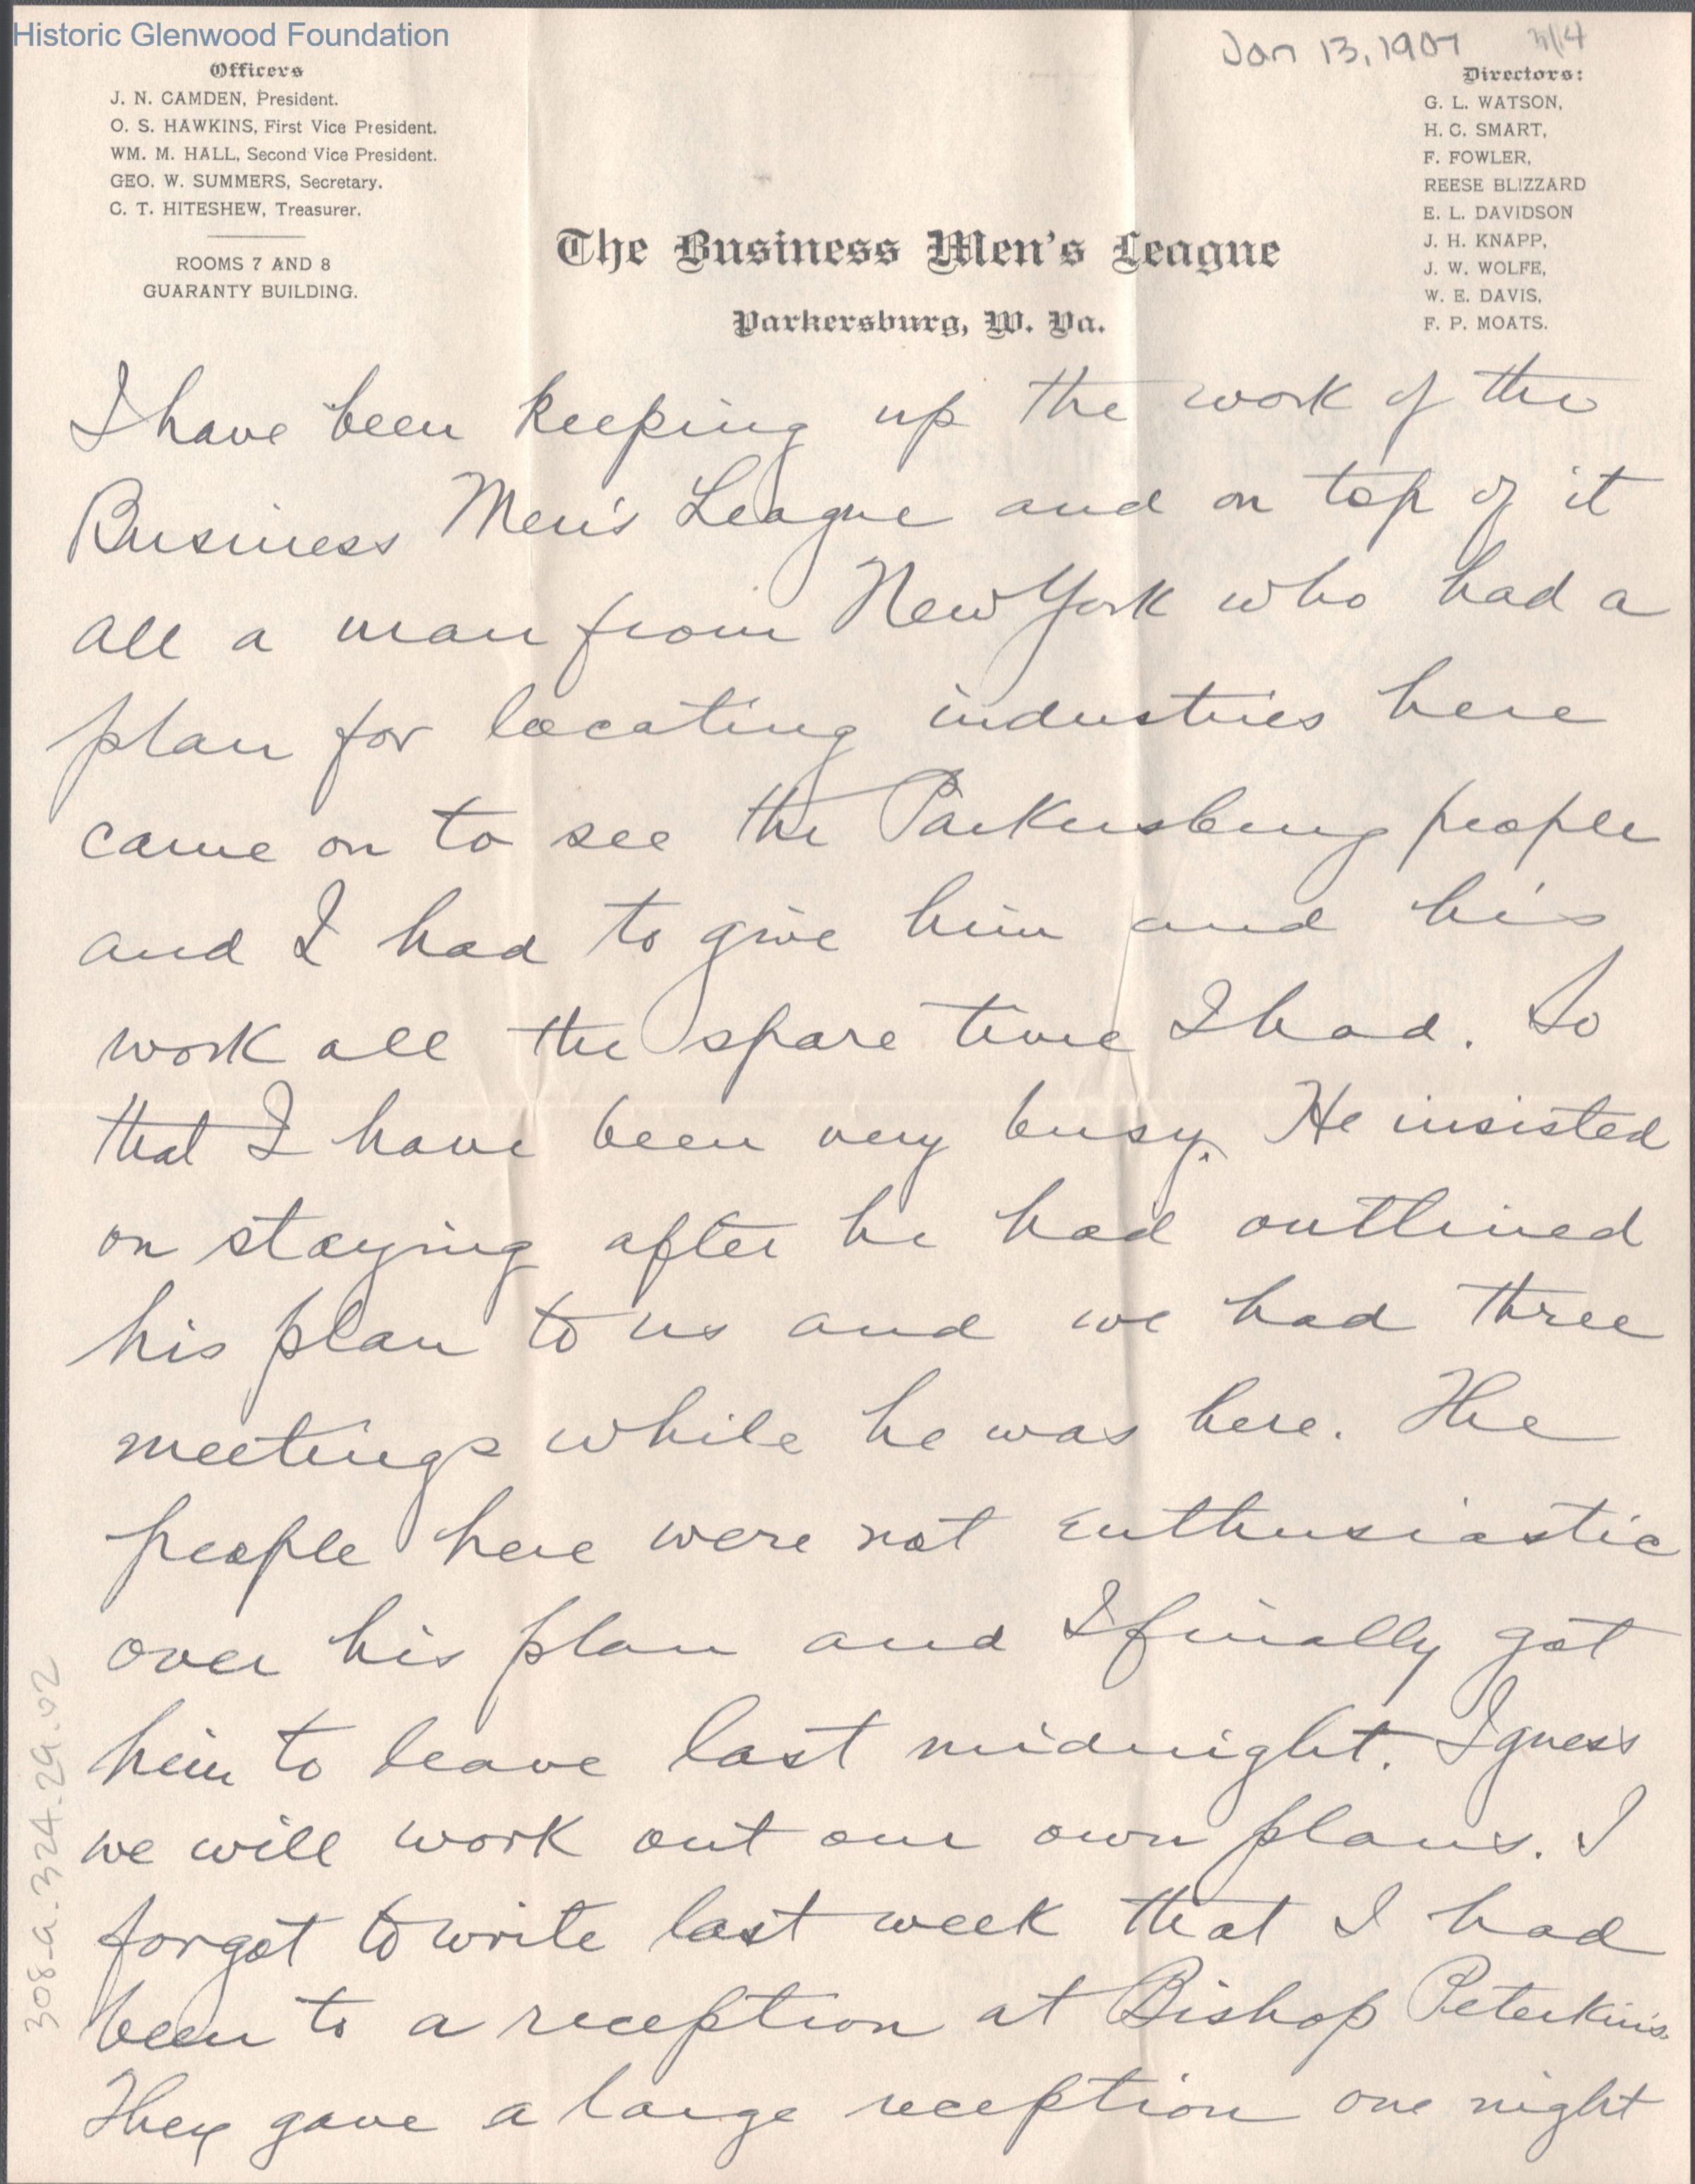 Historic Glenwood Foundation
Jan 13, 1907 3/14
Officers
J. N. CAMDEN, President.
O. S. HAWKINS, First Vice President.
WM. M. HALL, Second Vice President.
GEO. W. SUMMERS, Secretary.
C. T. HITESHEW, Treasurer.
ROOMS 7 AND 8
GUARANTY BUILDING.
Directors:
G. L. WATSON,
H. C. SMART,
F. FOWLER,
REESE BLIZZARD
E. L. DAVIDSON
J. H. KNAPP,
J. W. WOLFE,
W. E. DAVIS,
F. P. MOATS.
The Business Men's League
Parkersburg, W. Va.
I have been keeping up the work of the
Business Men's League and on top of it
all a man from New York who had a
plan for locating industries here
came on to see the Parkersburg people
and I had to give him and his
work all the spare time I had. So
that I have been very busy. He insisted
on staying after he had outlined
his plan to us and we had three
meetings while he was here. The
people here were not enthusiastic
over his plan and I finally got
him to leave last midnight. I guess
we will work out our own plans. I
forgot to write last week that I had
been to a reception at Bishop Peterkin's.
They gave a large reception one night
308.a.324.29.02